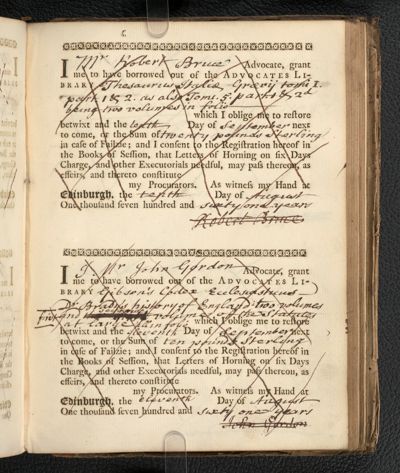 I Mr Robert Bruce Advocate, grant
me to have borrowed out of the ADVOCATES LI-
BRARY Thesaurus Italiæ Grævij tomi I.
part 1 & 2. as also Tomi. 5. part 1 & 2d
being two volumes in folio
which I oblige me to restore
betwixt and the tenth Day of September next
to come, or the Sum of twenty pounds sterling
in case of Failzie; and I consent to the Registration hereof in
the Books of Session, that Letters of Horning on six Days
Charge, and other Executorials needful, may pass thereon, as
effeirs, and thereto constitute
my Procurators. As witness my Hand at
Edinburgh, the tenth Day of August
One thousand seven hundred and sixty one years
Robert Bruce
I Mr John Gordon Advocate, grant
me to have borrowed out of the ADVOCATES LI-
BRARY Gibson's Codex Ecclesiasticus
Dr Brady's history of England two volumes
and volume of the Statutes
at large
which I oblige me to restore
betwixt and the eleventh Day of September next
to come, or the Sum of ten pounds Sterling
in case of Failzie; and I consent to the Registration hereof in
the Books of Session, that Letters of Horning on six Days
Charge, and other Executorials needful, may pass thereon, as
effeirs, and thereto constitute
my Procurators. As witness my Hand at
Edinburgh, the eleventh Day of August
One thousand seven hundred and sixty one years
John Gordon